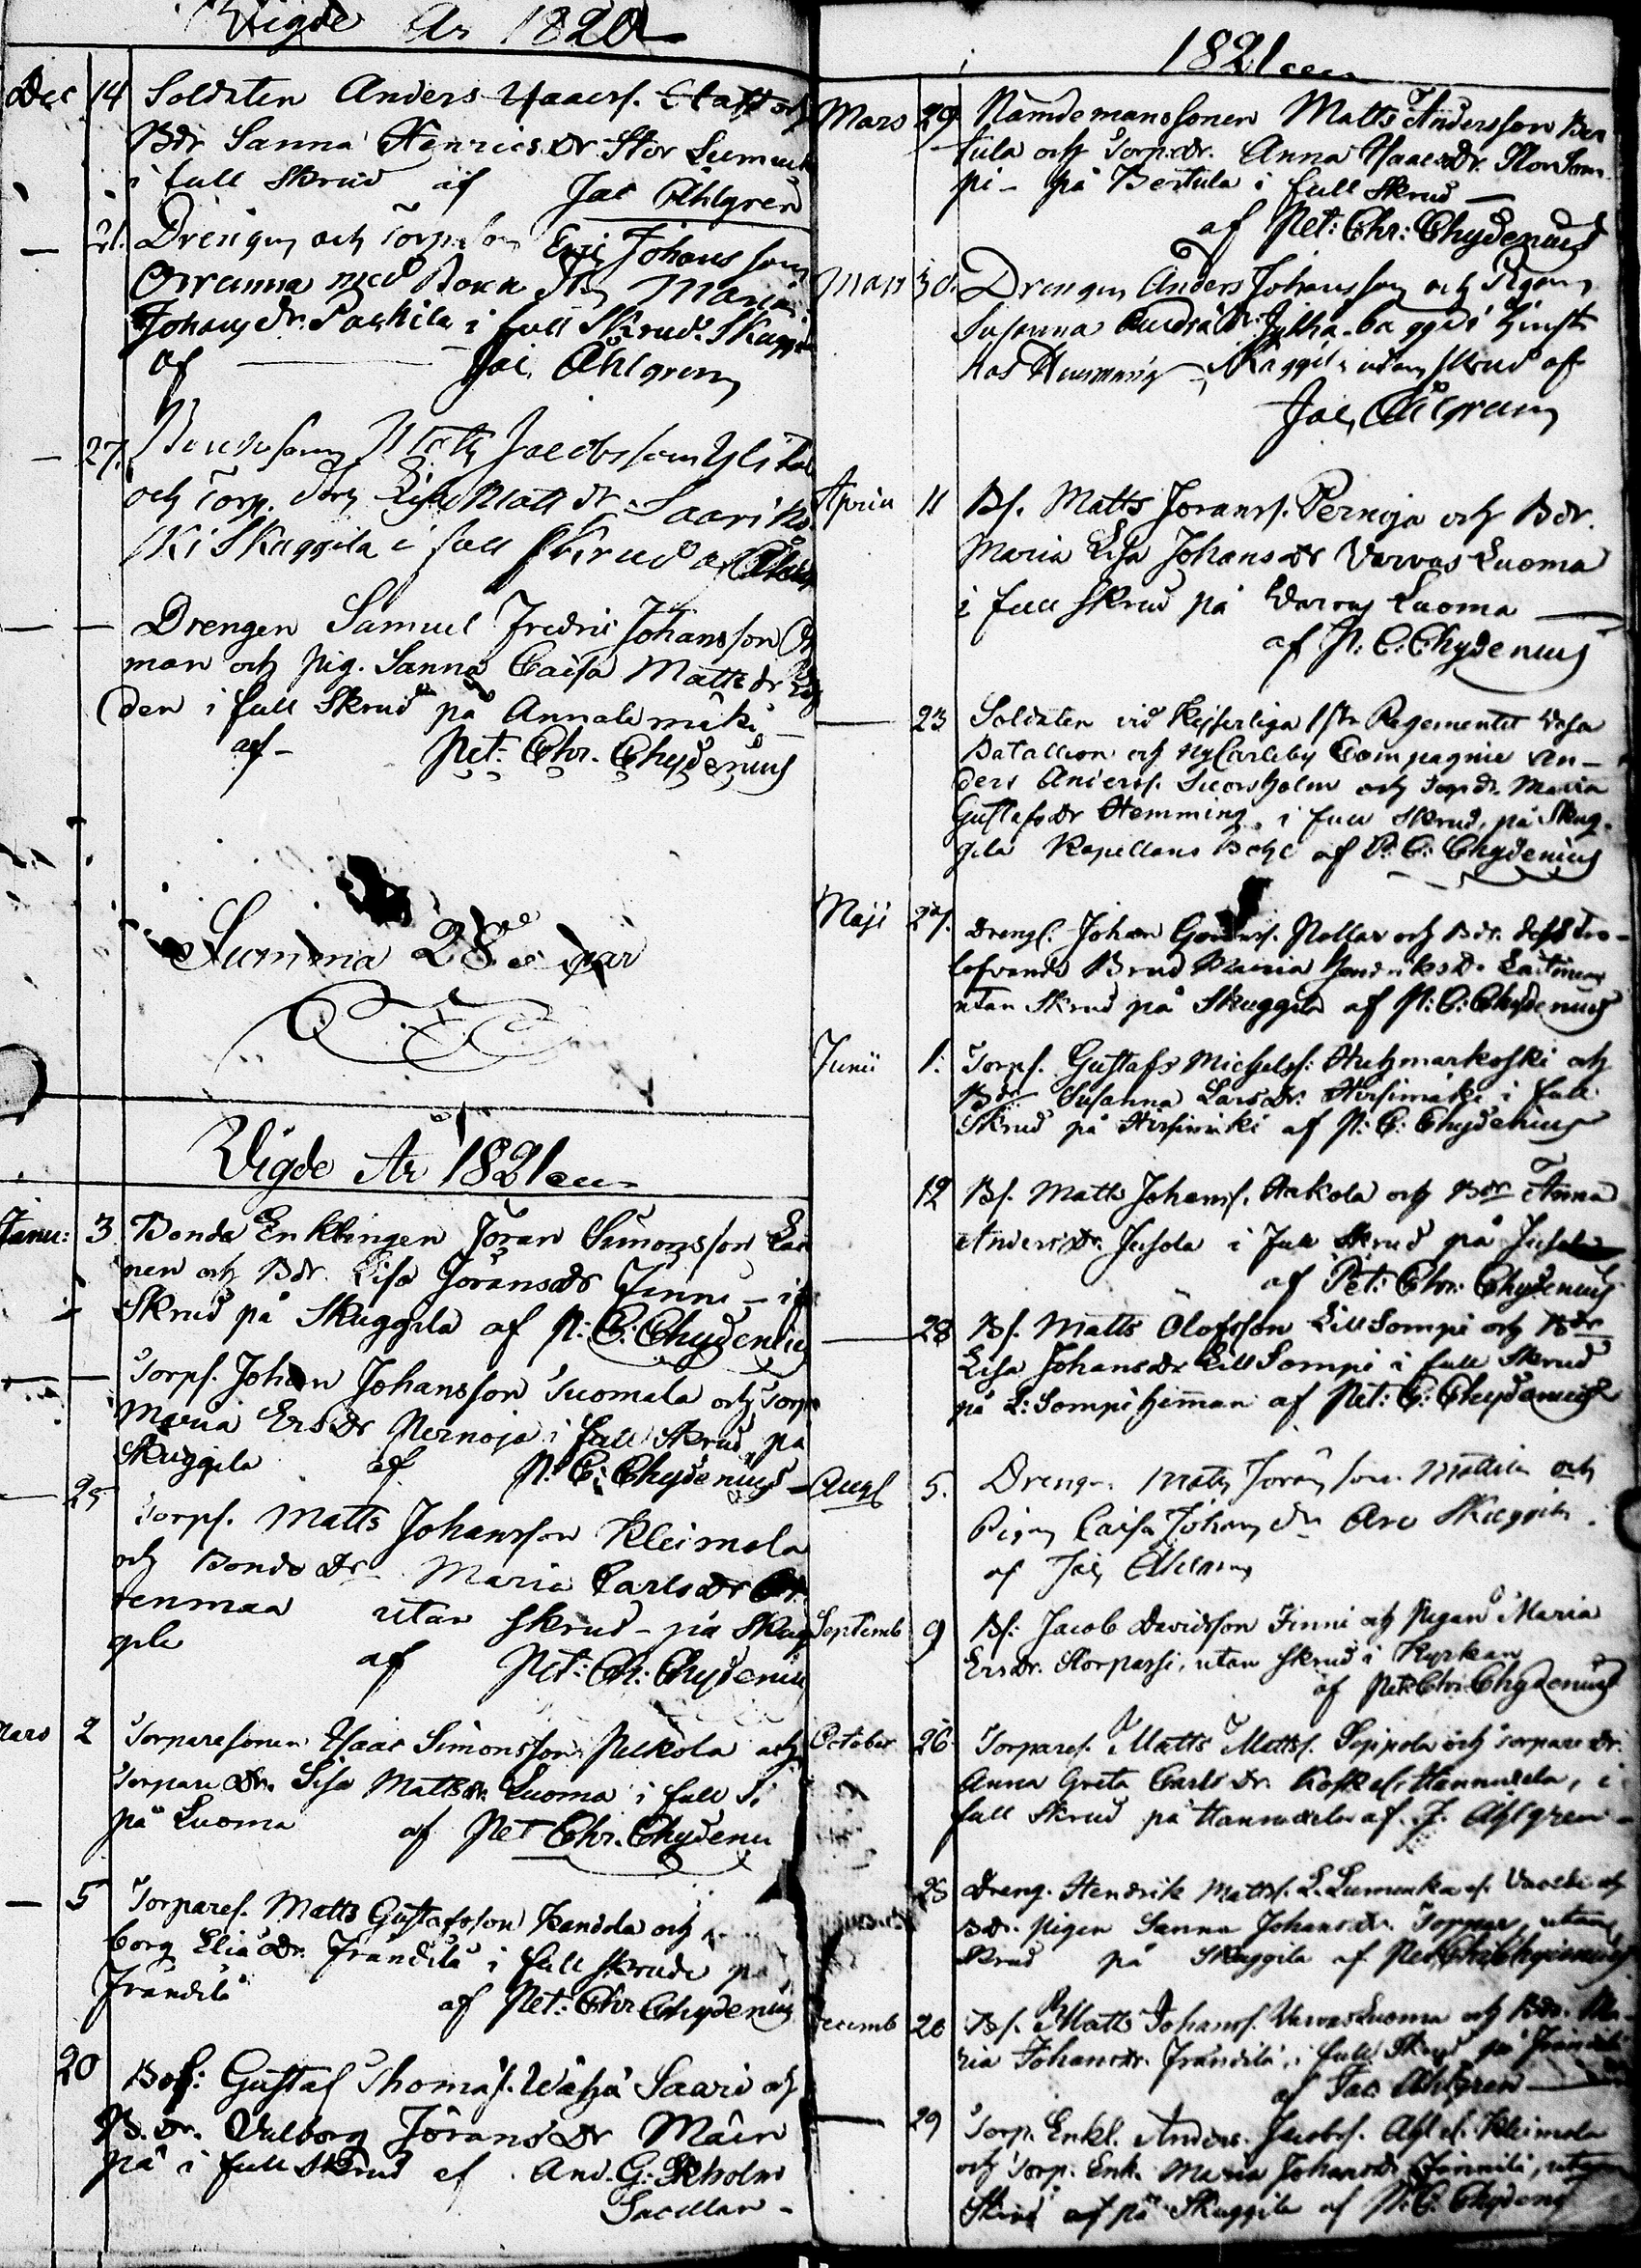 Vigde År 1820
Dec 14 Soldaten Anders Isaacs.
Bdr Sanna Henricsdr Stor Lumuka
i full Skrud af Jac Åhlgren
— 21. Drengen och Torp. Son Eric Johansson
Orranma med Bonn Dtr Maria
Johans dr. Packila i full Skrud. Skuggila
af — Jac. Åhlgren
— 27. Bondesonen Matts Jacobsson Yli
och Torp. dotr Lisa Matts dr. Saariko
ski Skuggila i full Skrud af Åhlgren
— — Drengen Samuel Fredric Johansson
man och pig. Sanna Caisa Matts dr
den i full Skrud på Annalamäki
af — Pet: Chr. Chydenius
Summa 28 par
Vigde År 1821
Janu: 3. Bonda Enklingen Jöran Simonsson
nen och Bdr. Lisa Jöransdr Finni — i
Skrud på Skuggila af P: C: Chydenius
— — Torps. Johan Johansson Tuomala och Torp
Maria Ersdr Pernoja i full Skrud på
Skuggila af P: C: Chydenius
— 25 Torps. Matts Johansson Kleimola
och Bonde Dr Maria Carlsdr
tenmaa utan Skrud – på Skug
gila af Pet: Chr: Chydenius
Mars 2 Torparesonen Isaac Simonsson Pelkola och
Torpare Dr. Lisa Mattsdr. Luoma i full S.
på Luoma af Pet Chr. Chydenius
— 5 Torpares. Matts Gustafsson Kandola och
borg Eliædr. Frändilä i full skrud på
Frändilä af Pet: Chr Chydenius
20 Bos: Gustaf Thomæs. Wähä Saari och
B. dr. Valborg Jöransdr Mäen
pä i full Skrud af And. G: Rholm
Sacellan –
1821
Mars 29. Nämdemanssonen Matts Andersson Ber
tula och Torp.dr. Anna Isaacsdr. Stor Som
pi – på Bertula i full Skrud —
af Pet: Chr: Chydenius
Mars 30. Drengen Anders Johansson och Pigan
Susanna Jylhä bägge i tjenst
hos Hemming Skuggila utan skrud af
Jac, Åhlgren
Aprill 11 Bs. Matts Jörans. Pernoja och Bdr.
Maria Lisa Johansdr Varvas Luoma
i full skrud på Varvas Luoma —
af P. C: Chydenius
— 23 Soldaten vid Kejserliga 1sta Regementet Vasa
Batallion och NyCarleby Compagnie An—
ders Anderss. Sveasholm och Torpdr. Maria
Gustafsdr Hemming, i full Skrud, på Skug.
gila Kapellans Bohl af P: C: Chydenius
Maji 27. Drengs. Johan Pollar och Bdr. dess Tro-
lofvande Brud Maria Hendriksdr. Laitinen
utan Skrud på Skuggila af P: C: Chydenius
Junii 1. Torps. Gustafs Michelss: Huhmarkoski och
Bdr Susanna Larsdr. Hirsimäki i full
Skrud på Hirsimäki af P: C: Chydenius
12 Bs. Matts Johanss. Aakola och Bdr Anna
Andersdr. Jussla i full Skrud på Jussla
af Pet: Chr: Chydenius
— 28 Bs. Matts Olofsson LillSompi och Bdr
Lisa Johansdr LillSompi i full Skrud
på L: Sompi heman af Pet: C: Chydenius
Augs 5. Drengen Matts Jöransson Mattila och
Pigan Caisa Johans dr Aro Skuggila.
af Jac Åhlgren
Septemb 9 Bs: Jacob Davidsson Finni och Pigan Maria
Ersdr. Storpassi, utan skrud i Kyrkan
af Pet: Chr: Chydenius
October 26 Torpares. Matts Mattss. Seppola och Torpare dr.
Anna Greta Carls Dr. Hannuksela, i
full Skrud på Hannuksela af J. Åhlgren –
28 Dreng. Hendrik Mattss. L. Lumuka och
Bdr. pigan Sanna Johansdr. Torppa, utan
Skrud på Skuggila af Pet: Chr: Chydenius
Decemb 26 Bs. Matts Johanss. VarvasLuoma och Bdr. Ma-
ria Johansdr. Frändilä, i full Skrud på Frändilä
af Jac. Åhlgren
— 29 Torp. Enkl. Anders. Jacobs. Kleimola
och Torp. Enk. Maria Johansdr. Finnilä, utan
Skrud af på Skuggila af P: C. Chydenius